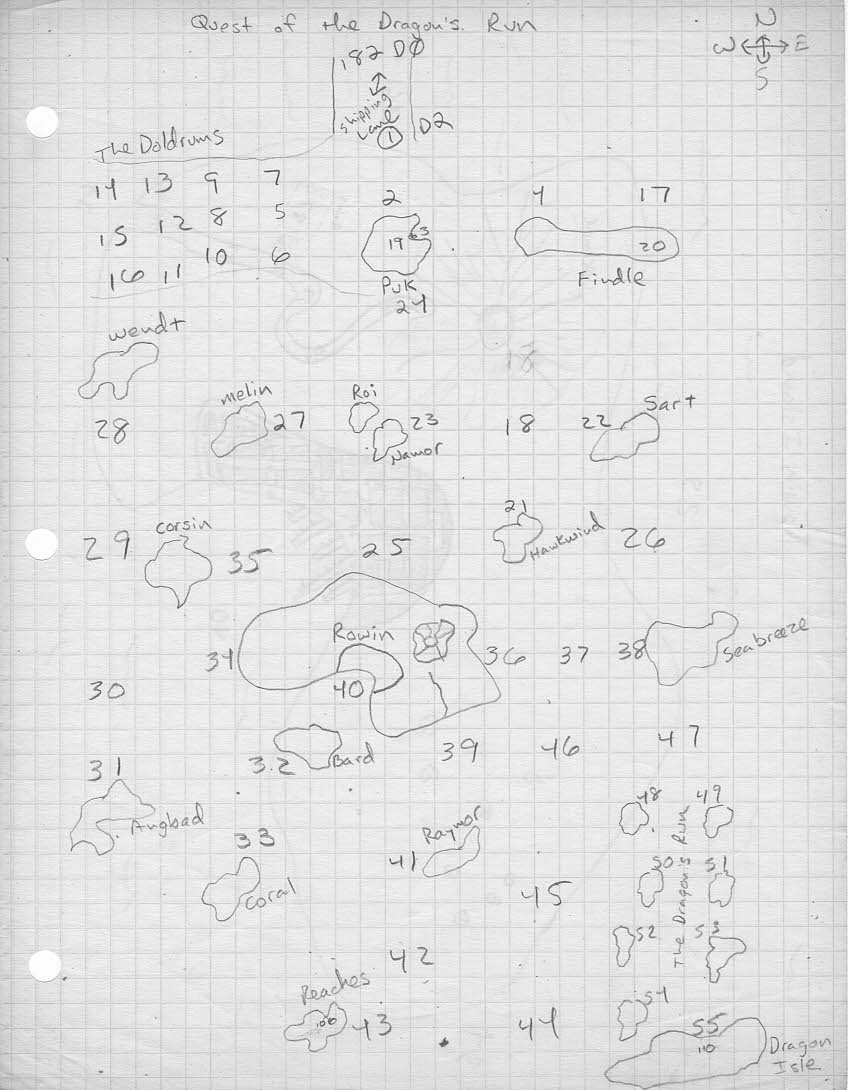 Quest of the Dragon's Run
N
W E
S
182 D0
Shipping
Lane
1
D2
The Doldrums
14 13 9 7
15 12 8 5
16 11 10 6
2
19 63
Puk
24
4 17
20
Findle
18
wendt
28
melin
27
Roi
23
Namor
18
22
Sart
29
corsin
35
25
21
Hawkwind
26
34
Rowin
40
36 37 38
Seabreeze
30
32
Bard
39 46 47
31
Angbad
33
coral
Raymor
41
45
48 49
50 51
52 53
54
The Dragon's Run
42
Reaches
100
43
44
55
110
Dragon
Isle